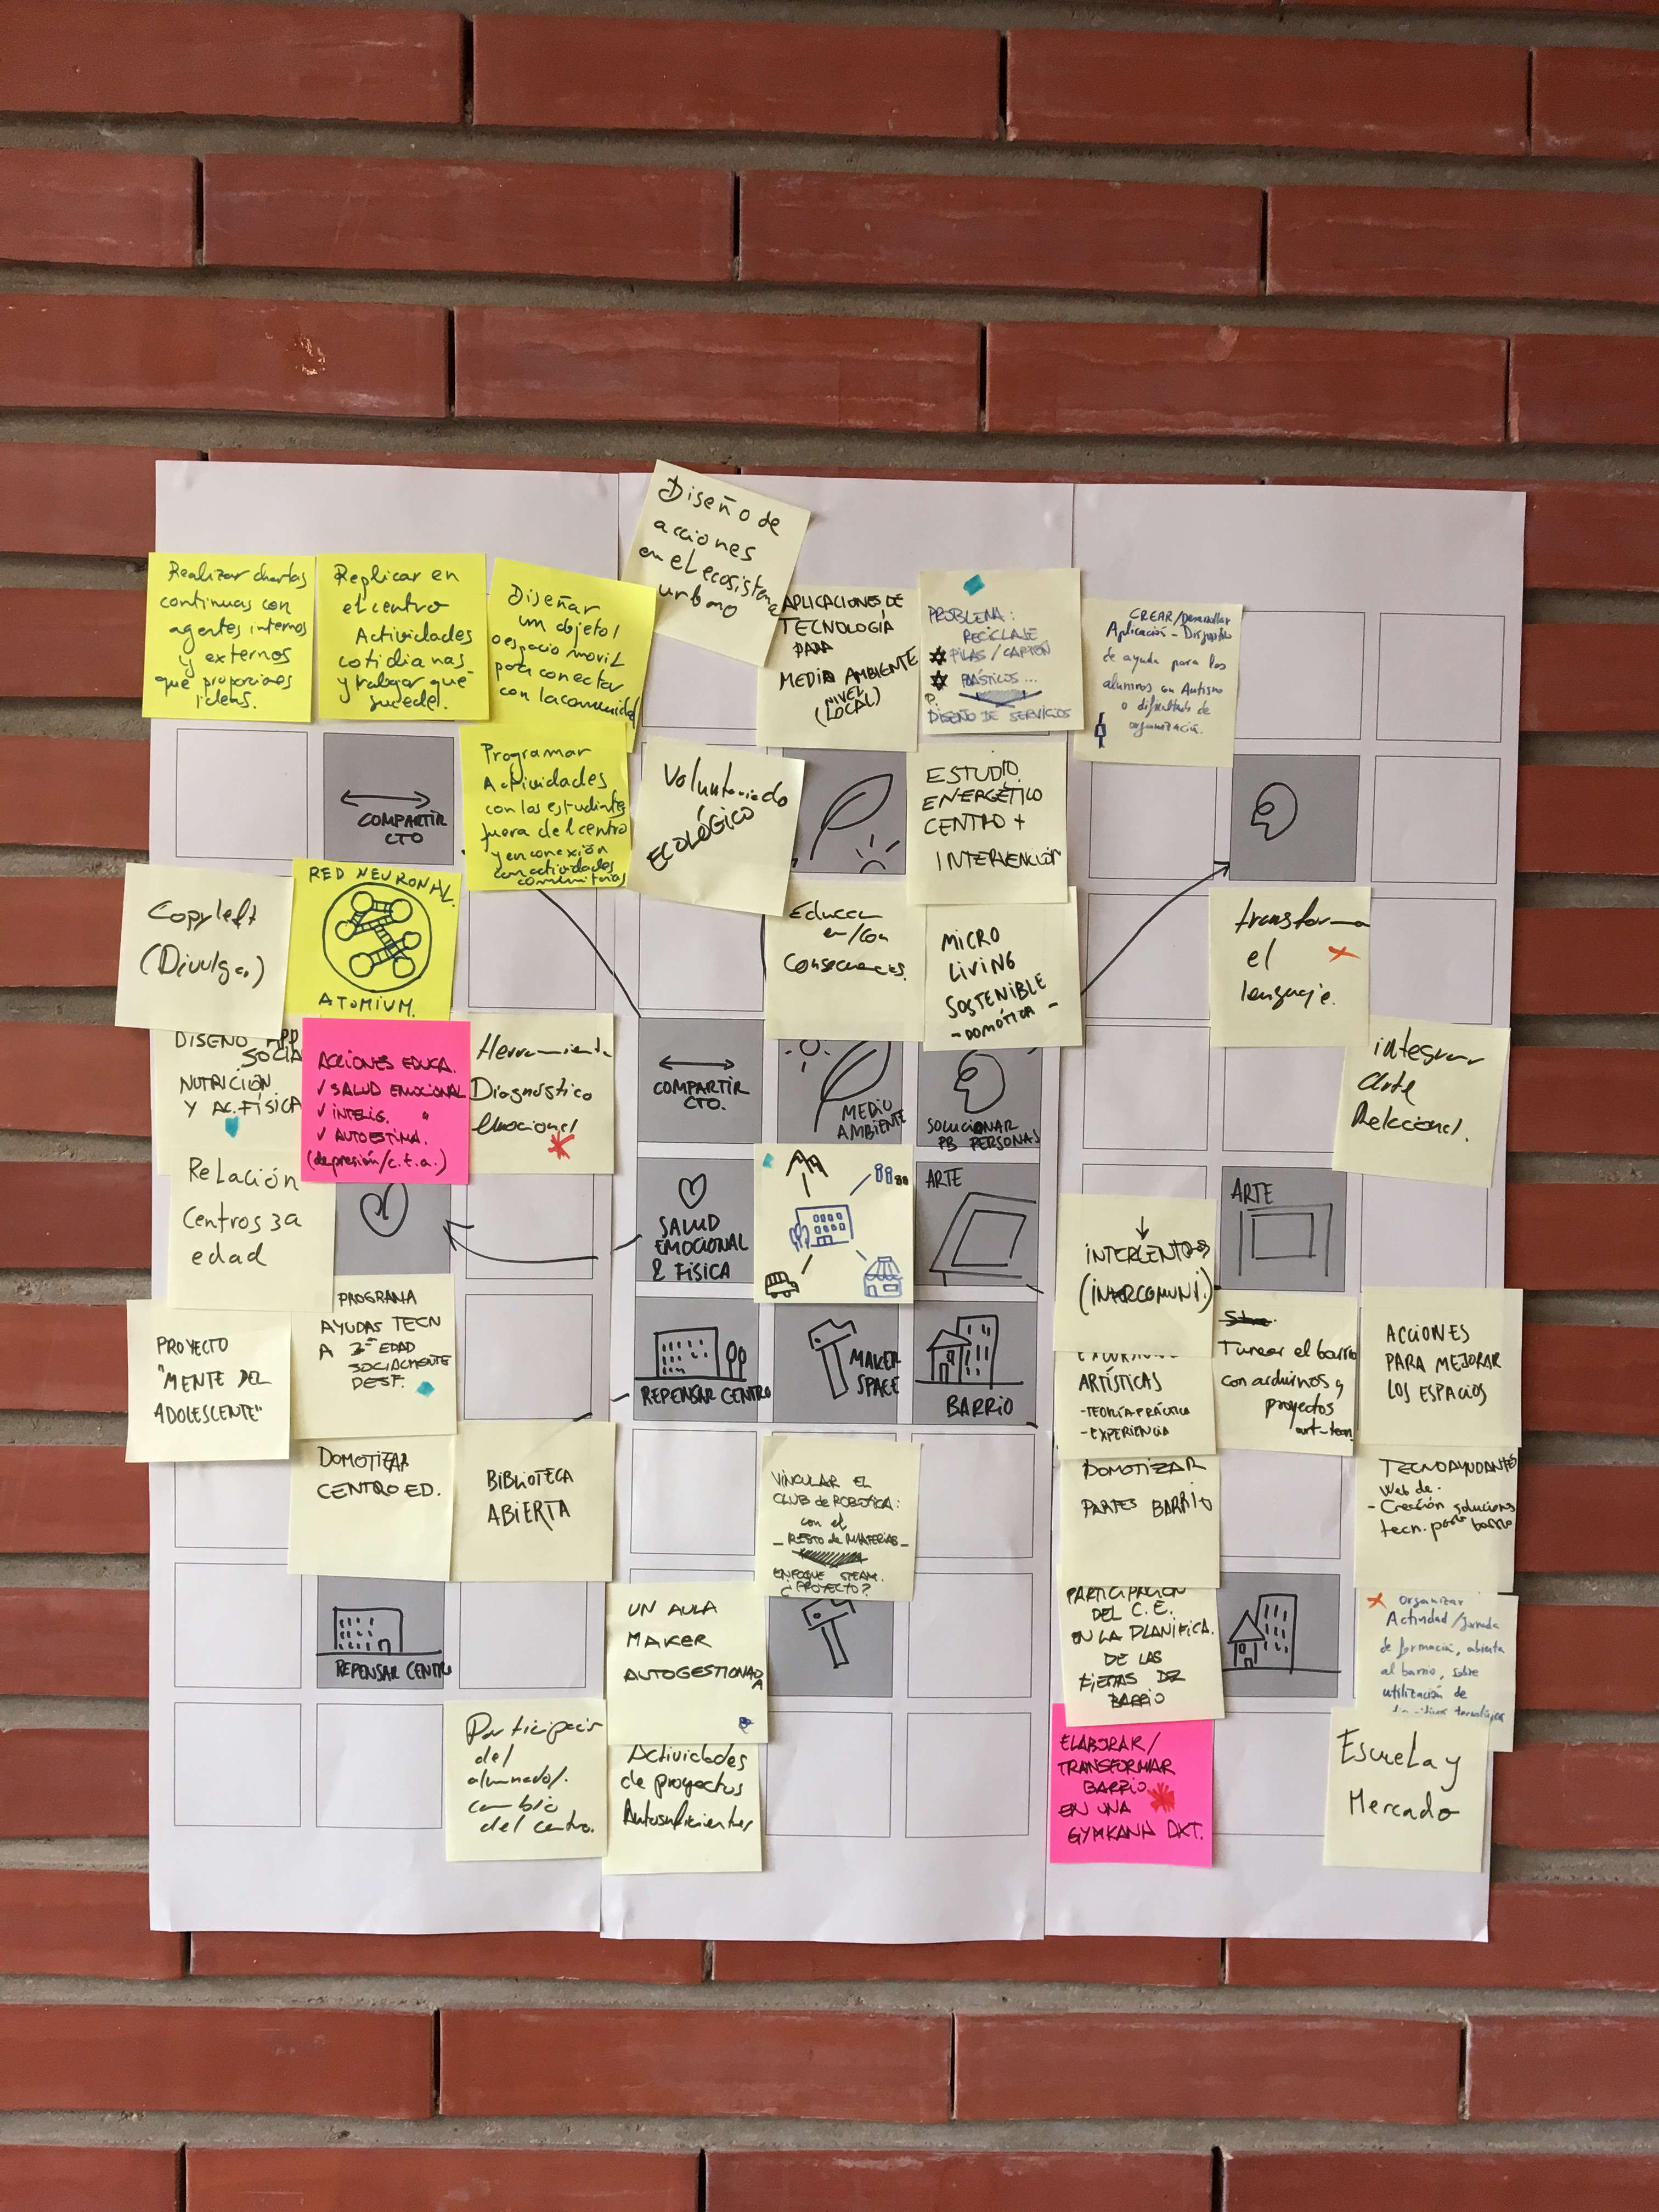 Diseño de
acciones
en el ecosistema
urbano
Realizar charlas
continuas con
agentes internos
y externos
que proporcionen
ideas.
Replicar en
el centro
Actividades
cotidianas
y trabajar qué
sucede.
Diseñar
un objeto/
o espacio movil
para conectar
con la comunidad
APLICACIONES DE
TECNOLOGÍA
PARA
MEDIO AMBIENTE
(NIVEL
LOCAL)
PROBLEMA:
RECICLAJE
PILAS / CARTÓN
PLÁSTICOS...
DISEÑO DE SERVICIOS
CREAR/Desarrollar
Aplicación - Dispositivo
de ayuda para los
alumnos con Autismo
o dificultades de
organización.
COMPARTIR
CTO
Programar
Actividades
con los estudiantes
fuera del centro
y en conexión
con actividades
comunitarias
Voluntariado
ECOLÓGICO
ESTUDIO
ENERGÉTICO
CENTRO +
INTERVENCIÓN
Copyleft
(Divulga)
RED NEURONAL.
ATOMIUM.
Educar
en/con
Consecuencias.
MICRO
LIVING
SOSTENIBLE
- DOMÓTICA -
transformar
el
lenguaje.
DISEÑO APP
SOCIAL
NUTRICIÓN
Y AC. FÍSICA
ACCIONES EDUCA.
✓ SALUD EMOCIONAL
✓ INTELIG. "
✓ AUTOESTIMA.
(depresión/c.t.a.)
Herramienta
Diagnóstico
emocional
COMPARTIR
CTO.
MEDIO
AMBIENTE
SOLUCIONAR
PB PERSONAS
integrar
Arte
Relacional.
Relación
Centros 3a
edad
SALUD
EMOCIONAL
& FÍSICA
ARTE
INTERCENTROS
(INTERCOMUNI.)
ARTE
PROYECTO
"MENTE DEL
ADOLESCENTE"
PROGRAMA
AYUDAS TECN
A 3ª EDAD
SOCIALMENTE
DESF.
REPENSAR CENTRO
MAKER
SPACE
BARRIO
ARTÍSTICAS
- TEORÍA-PRÁCTICA
- EXPERIENCIA
Tunear el barrio
con arduinos y
proyectos
art-tecn.
ACCIONES
PARA MEJORAR
LOS ESPACIOS
DOMOTIZAR
CENTRO ED.
BIBLIOTECA
ABIERTA
VINCULAR EL
CLUB de ROBÓTICA:
con el
- RESTO de MATERIAS -
ENFOQUE STEAM.
¿PROYECTO?
DOMOTIZAR
PARTES BARRIO
TECNOAYUDANTES
Web de.
- Creación soluciones
tecn. para barrio
REPENSAR CENTRO
UN AULA
MAKER
AUTOGESTIONADA
PARTICIPACIÓN
DEL C.E.
EN LA PLANIFICA.
DE LAS
FIESTAS DE
BARRIO
organizar
Actividad/Jornada
de formación, abierta
al barrio, sobre
utilización de
dispositivos tecnológicos
Participación
del
alumnado/.
cambio
del centro.
Actividades
de proyectos
Autosuficientes
ELABORAR/
TRANSFORMAR
BARRIO
EN UNA
GYMKANA DXT.
Escuela y
Mercado